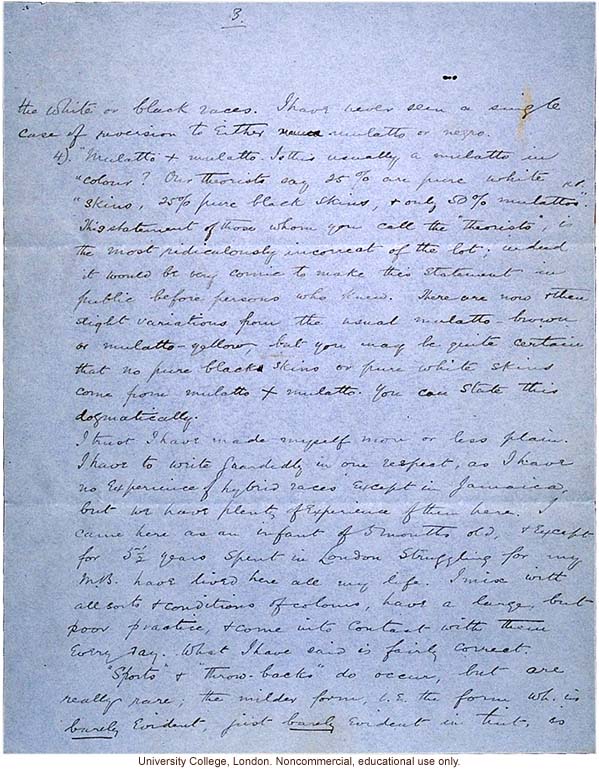 3.
the white or black races. I have never seen a single
case of reversion to Either mulatto or negro.
4). "Mulatto + mulatto. Is this usually a mulatto in
"colour? Our theorists say 25% are pure white
"skins, 25% pure black skins, + only 50% mulattos".
This statement of those whom you call the "theorists", is
the most ridiculously incorrect of the lot; indeed
it would be very comic to make this statement in
public before persons who knew. There are now + then
slight variations from the usual mulatto-brown
or mulatto-yellow, but you may be quite certain
that no pure black skins or pure white skins
come from mulatto × mulatto. You can state this
dogmatically.
I trust I have made myself more or less plain.
I have to write guardedly in one respect, as I have
no Experience of hybrid races Except in Jamaica,
but we have plenty of Experience of them here. I
came here as an infant of 5 months old, + Except
for 5½ years spent in London struggling for my
M.B. have lived here all my life. I mix with
all sorts + conditions of colours, have a large, but
poor practice, + come into contact with them
Every day. What I have said is fairly correct.
"Sports" + "throw-backs" do occur, but are
really rare; the milder form, i.e. the form wh. is
barely Evident, just barely Evident in tint, is
University College, London. Noncommercial, educational use only.